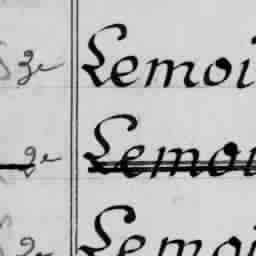 3e Lemoi
2e Lemoi
2e Lemoi